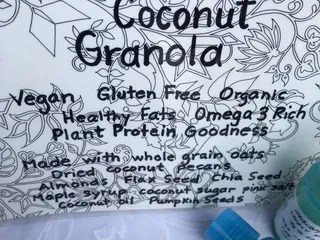 Coconut
Granola
Vegan Gluten Free Organic
Healthy Fats Omega 3 Rich
Plant Protein Goodness
Made with whole grain oats
Dried coconut pecans
Almonds Flax Seed Chia Seed
Maple Syrup coconut sugar pink salt
Coconut oil Pumpkin Seeds